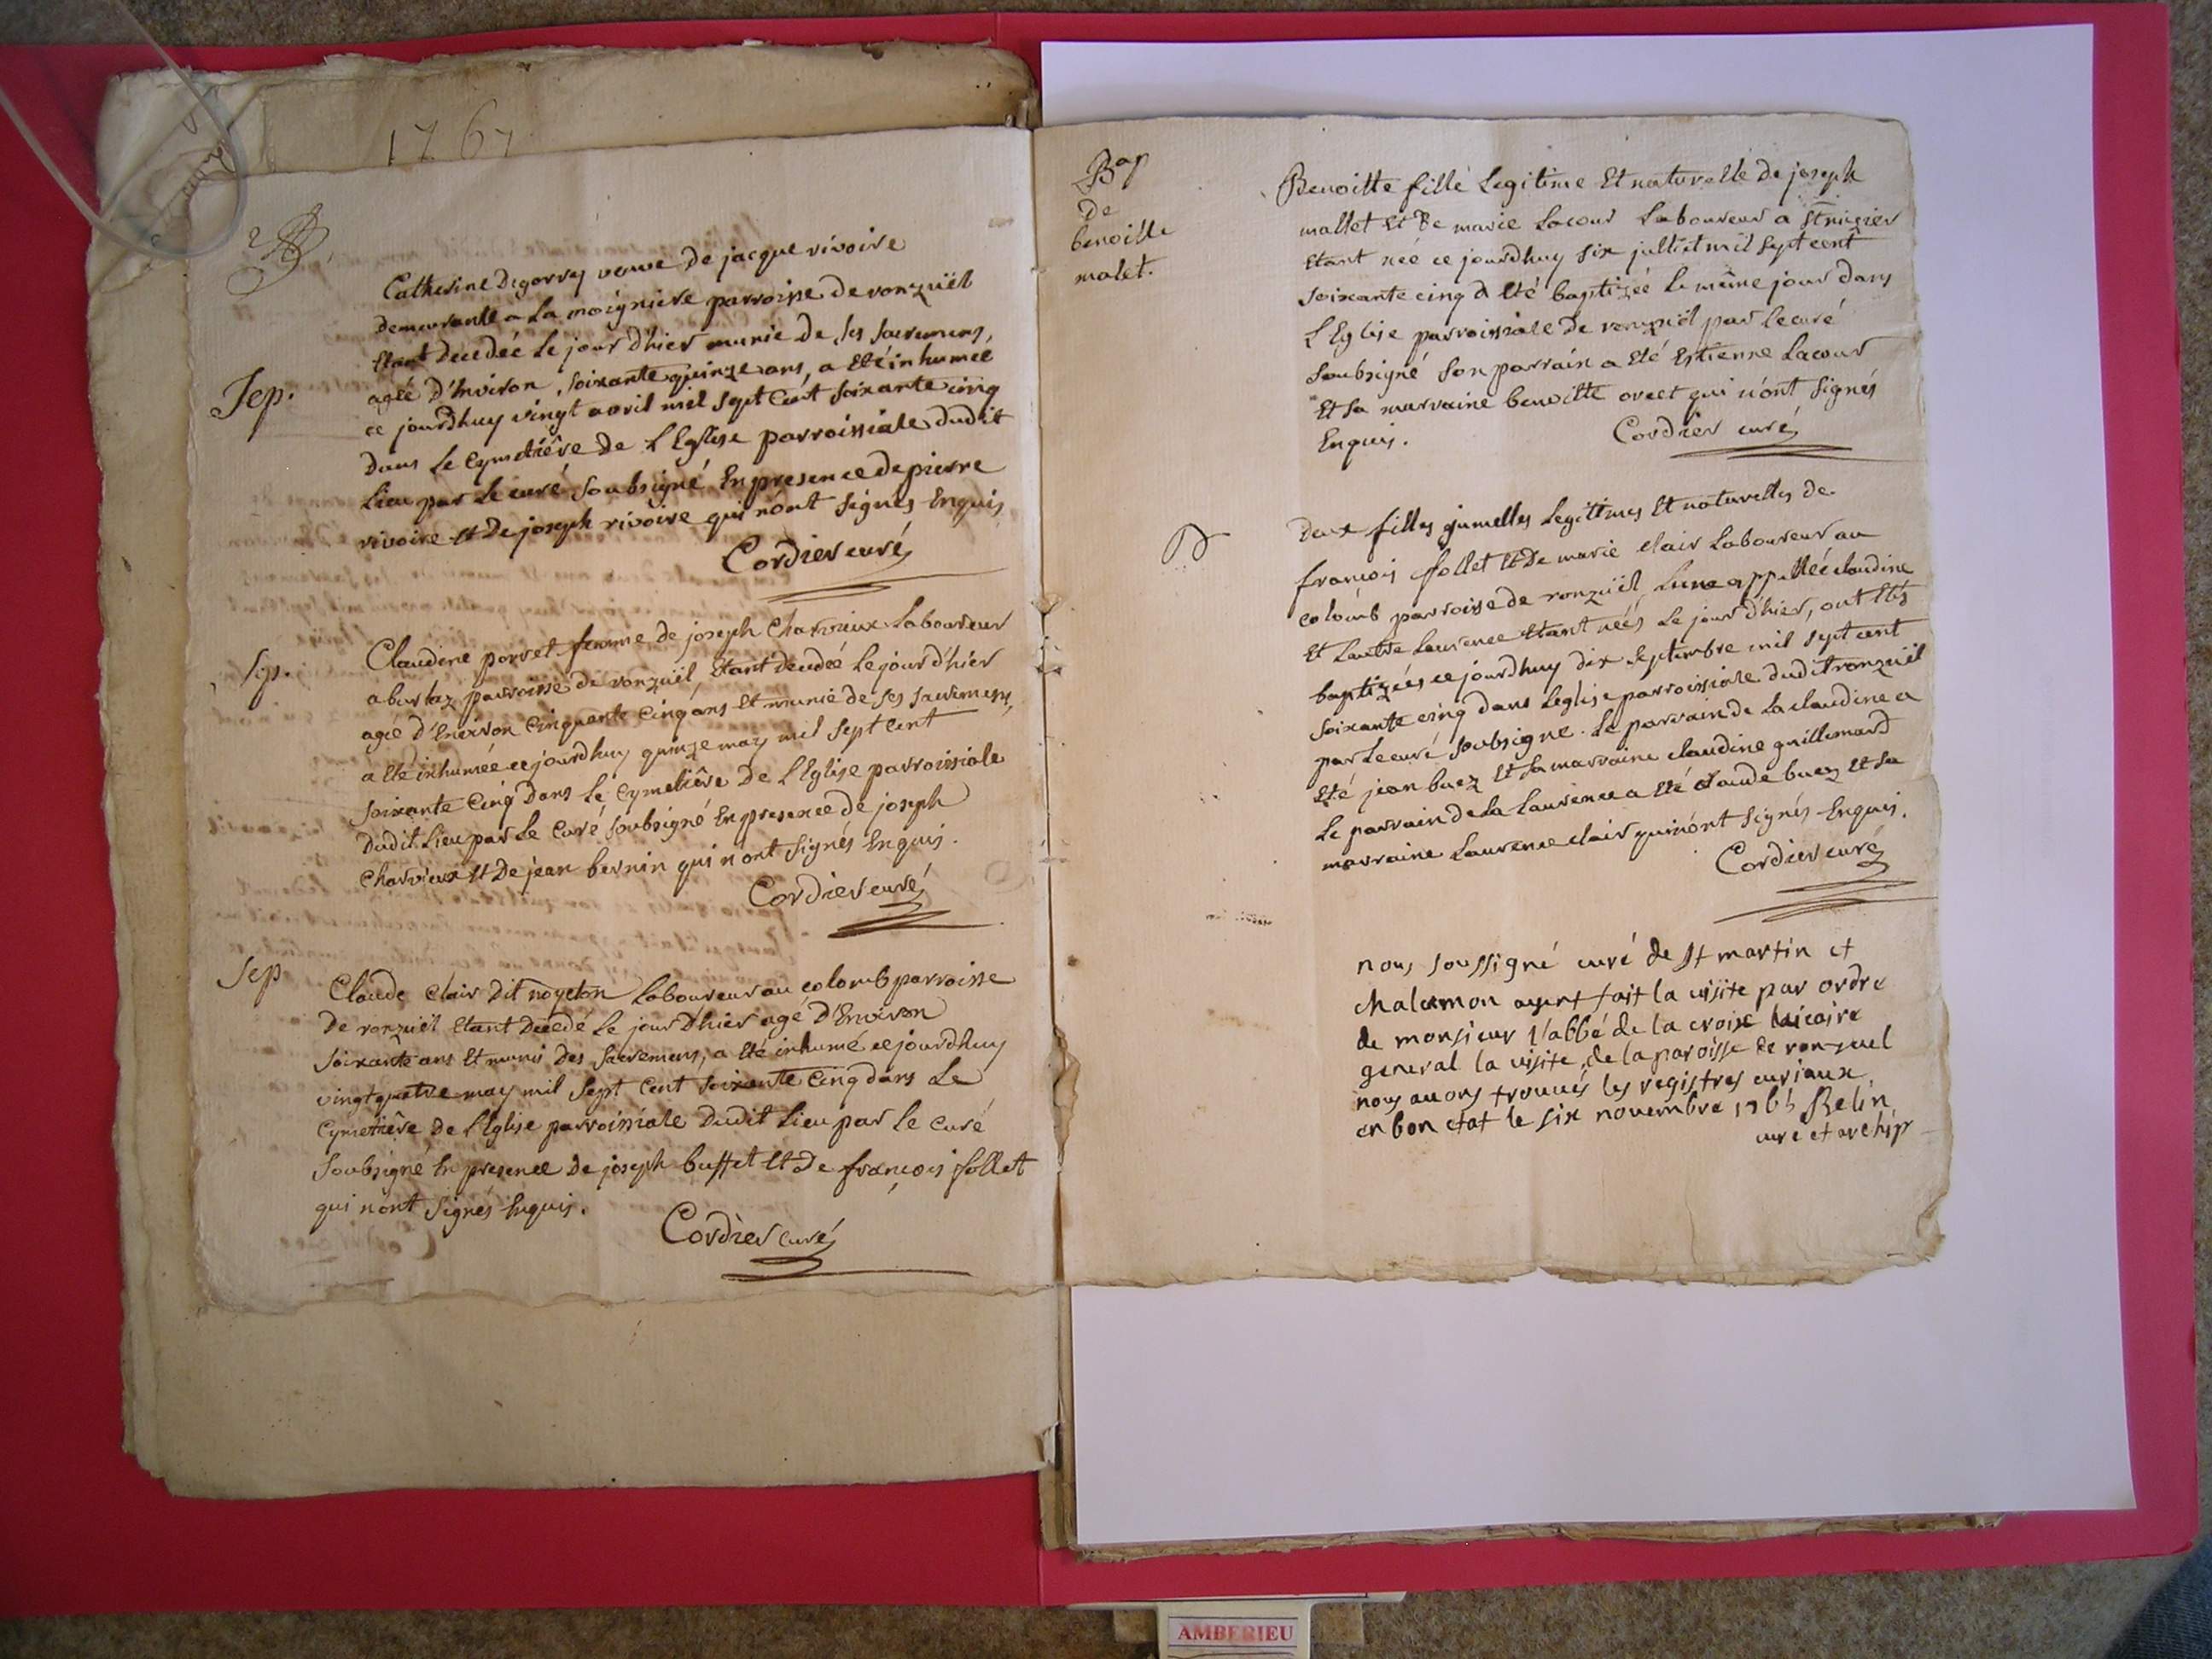 1767
Sep.
Catherine Degorrey veuve De jacque rivoire
demeurante a La moigniere parroisse de ronzuël
Etant decedeé Le jour d'hier munie De ses sacremens,
ageé d'Environ soixante quinze ans, a Eté inhumeé
ce jourdhuy vingt avril mil sept Cent soixante cinq
Dans Le Cymetiêre De L'Eglise parroissiale Dudit
Lieu par Le curé soubsigné En presence De pierre
rivoire Et De joseph rivoire qui n'ont signés Enquis
Cordier curé
Sep.
Claudine porret femme de joseph Charvieux Laboureur
a burlaz parroisse de ronzuël, Etant decedeé Le jour d'hier
ageé d'Environ Cinquante Cinq ans Et munie de ses sacremens,
a Eté inhumeé ce jourdhuy quinze may mil sept Cent
soixante Cinq Dans Le Cymetiêre De L'Eglise parroissiale
Dudit Lieu par Le Curé soubsigné En presence de joseph
Charvieux Et De jean bernin qui n'ont signés Enquis.
Cordier curé
Sep
Claude Clair Dit noyeton Laboureur au colomb parroisse
De ronzuël Etant Decedé Le jour D'hier agé D'Environ
soixante ans Et munis Des sacremens, a Eté inhumé ce jourdhuy
vingt quatre may mil Sept Cent soixante Cinq dans Le
Cymetiêre De L'Eglise parroissiale Dudit Lieu par Le Curé
Soubsigné En presence De joseph buffet Et De françois follet
qui n'ont Signés Enquis.
Cordier curé
Bap
De
benoitte
malet.
Benoitte fille Legitime Et naturelle De joseph
mallet Et De marie Lacour Laboureur a St nizier
Etant neé ce jourdhuy six julliet mil Sept cent
soixante cinq a Eté baptizeé Le même jour dans
L'Eglise parroissiale De ronzuël par Le curé
Soubsigné Son parrain a Eté Estienne Lacour
Et Sa marraine benoitte ovret qui n'ont Signés
Enquis.
Cordier curé
Deux filles jumelles Legitimes Et naturelles de
françois follet Et De marie clair Laboureur au
colomb parroisse de ronzuël, Lune appelleé claudine
Et Lautre Laurence Etant neés Le jour d'hier, ont Etés
baptizeés ce jourdhuy dix Septembre mil sept cent
soixante cinq dans Leglise parroissiale dudit ronzuël
par Le curé soubsigne. Le parrain de La claudine a
Eté jean buez Et Sa marraine claudine guillemard
Le parrain de La Laurence a Eté claude buez Et Sa
marraine Laurence clair qui n'ont Signés Enquis.
Cordier curé
nous soussigné curé de St martin et
chalamon ayent fait la visite par ordre
de monsieur l'abbé de la croix vicaire
general la visite de la paroisse de ronzuel
nous auons trouués les registres curiaux
en bon etat le six novembre 1765 Belin
curé et archip
AMBERIEU